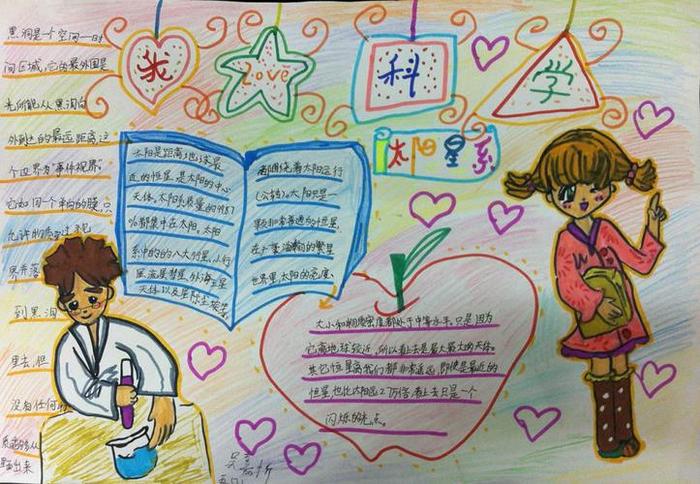 我 Love 科 学
太阳星系
黑洞是一个空间一时
间区域,它的最外围是
光所能从黑洞向
外到达的最远距离,这
个边界为“事件视界”。
它如同一个单向的膜,只
允许物质穿过视
界并落
到黑洞
里去,但
没有任何
质能够从
里面出来
太阳是距离地球最
近的恒星,是太阳的中心
天体,太阳系质量的99.87
%都集中在太阳。太阳
系中的的八大行星、小行
星、流星、彗星、外海王星
天体以及星际尘埃等,
都围绕着太阳运行
(公转)。太阳只是一
颗非常普通的恒星,
在广袤浩瀚的繁星
世界里,太阳的亮度、
大小和物质密度都处于中等水平。只是因为
它离地球较近,所以看上去是最大最亮的天体。
其它恒星离我们都非常遥远,即使是最近的
恒星,也比太阳远27万倍,看上去只是一个
闪烁的光点。